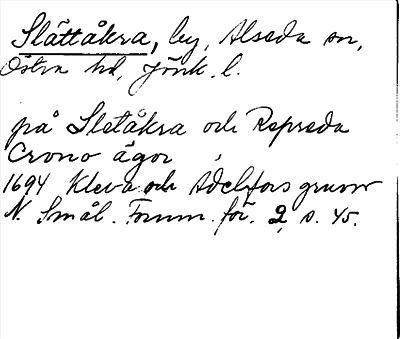 Slättåkra, by, Alseda sn,
Östra hd, Jönk. l.
på Sletåkra och Repreda
Crono ägor
1694 Kleva och Adelfors gruvor
N. Smål. Fornm. för. 2, s. 45.